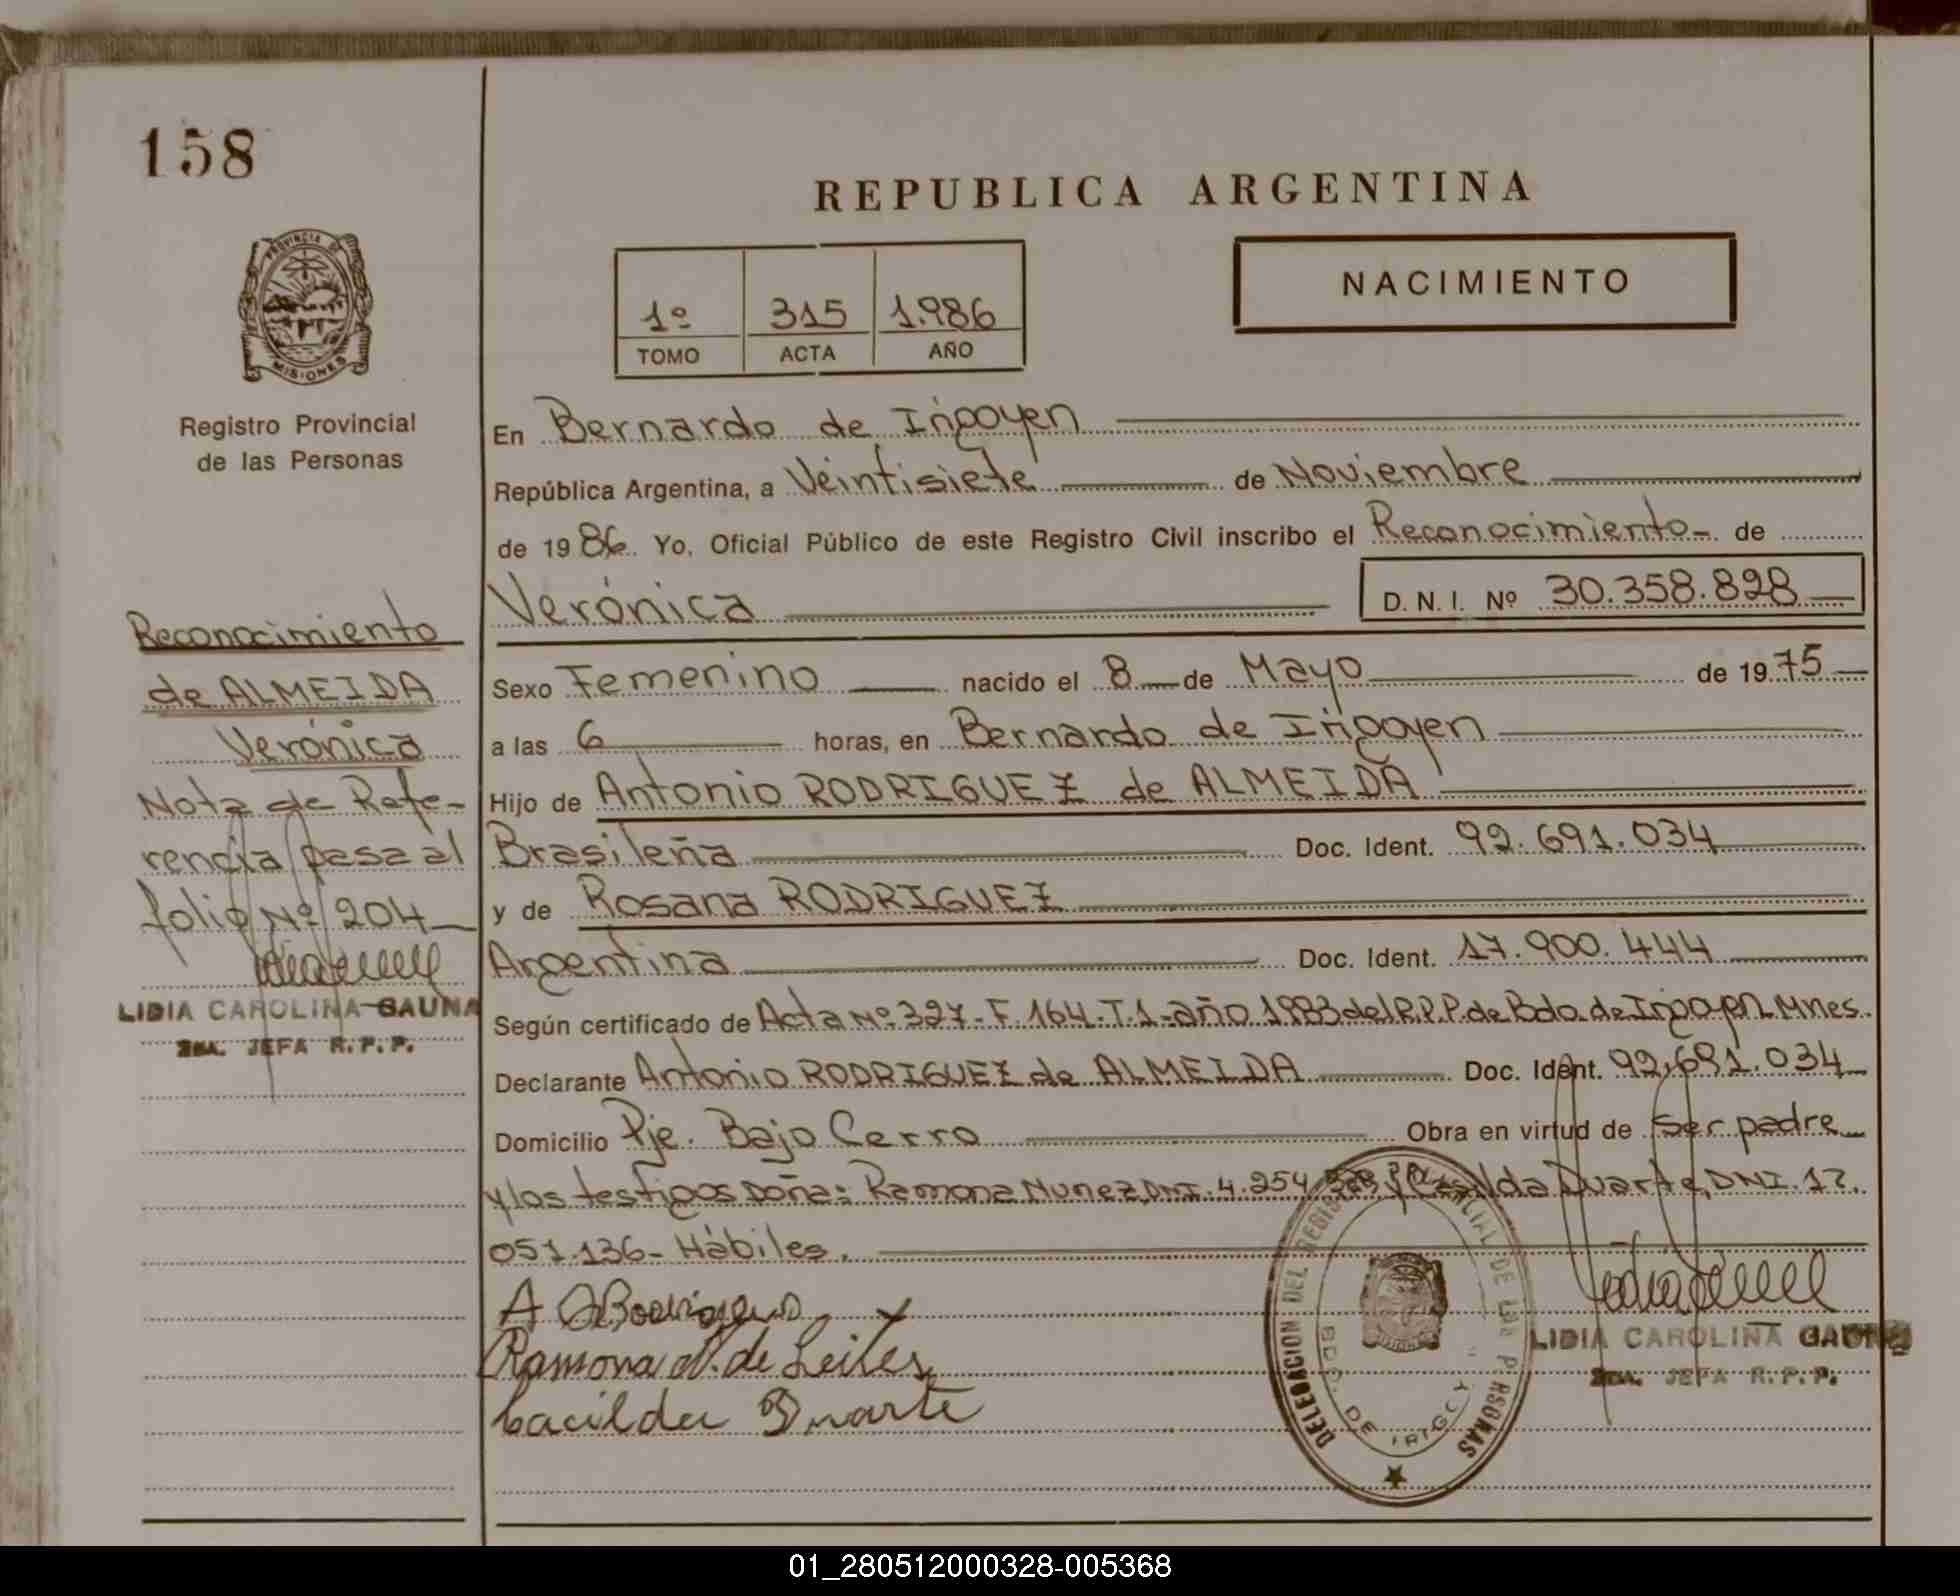 158
REPUBLICA ARGENTINA
PROVINCIA DE
MISIONES
1º 315 1.986
TOMO ACTA AÑO
NACIMIENTO
Registro Provincial
de las Personas
En Bernardo de Irigoyen
República Argentina, a Veintisiete de Noviembre
de 1986. Yo, Oficial Público de este Registro Civil inscribo el Reconocimiento - de
Verónica D. N. I. Nº 30.358.828
Sexo Femenino nacido el 8 de Mayo de 1975
a las 6 horas, en Bernardo de Irigoyen
Hijo de Antonio RODRIGUEZ de ALMEIDA
Brasileña Doc. Ident. 92.691.034
y de Rosana RODRIGUEZ
Argentina Doc. Ident. 17.900.444
Según certificado de Acta Nº 327- F. 164- T.1- año 1983 del R.P.P. de Bdo. de Irigoyen Mnes.
Declarante Antonio RODRIGUEZ de ALMEIDA Doc. Ident. 92.691.034
Domicilio Pje. Bajo Cerro Obra en virtud de ser padre
y los testigos Doña: Ramona Nunez, DNI. 4.254. y Casilda Duarte, DNI. 17.
051.136- Hábiles.
A Rodrigues
Ramona N. de Leites
Cacilda Duarte
Reconocimiento
de ALMEIDA
Verónica
Nota de Refe-
rencia pasa al
folio Nº 204
LIDIA CAROLINA GAUNA
2da. JEFA R. P. P.
DELEGACION DEL REGISTRO PROVINCIAL DE LAS PERSONAS
BDO. DE IRIGOY
LIDIA CAROLINA GAUNA
2da. JEFA R. P. P.
01_280512000328-005368